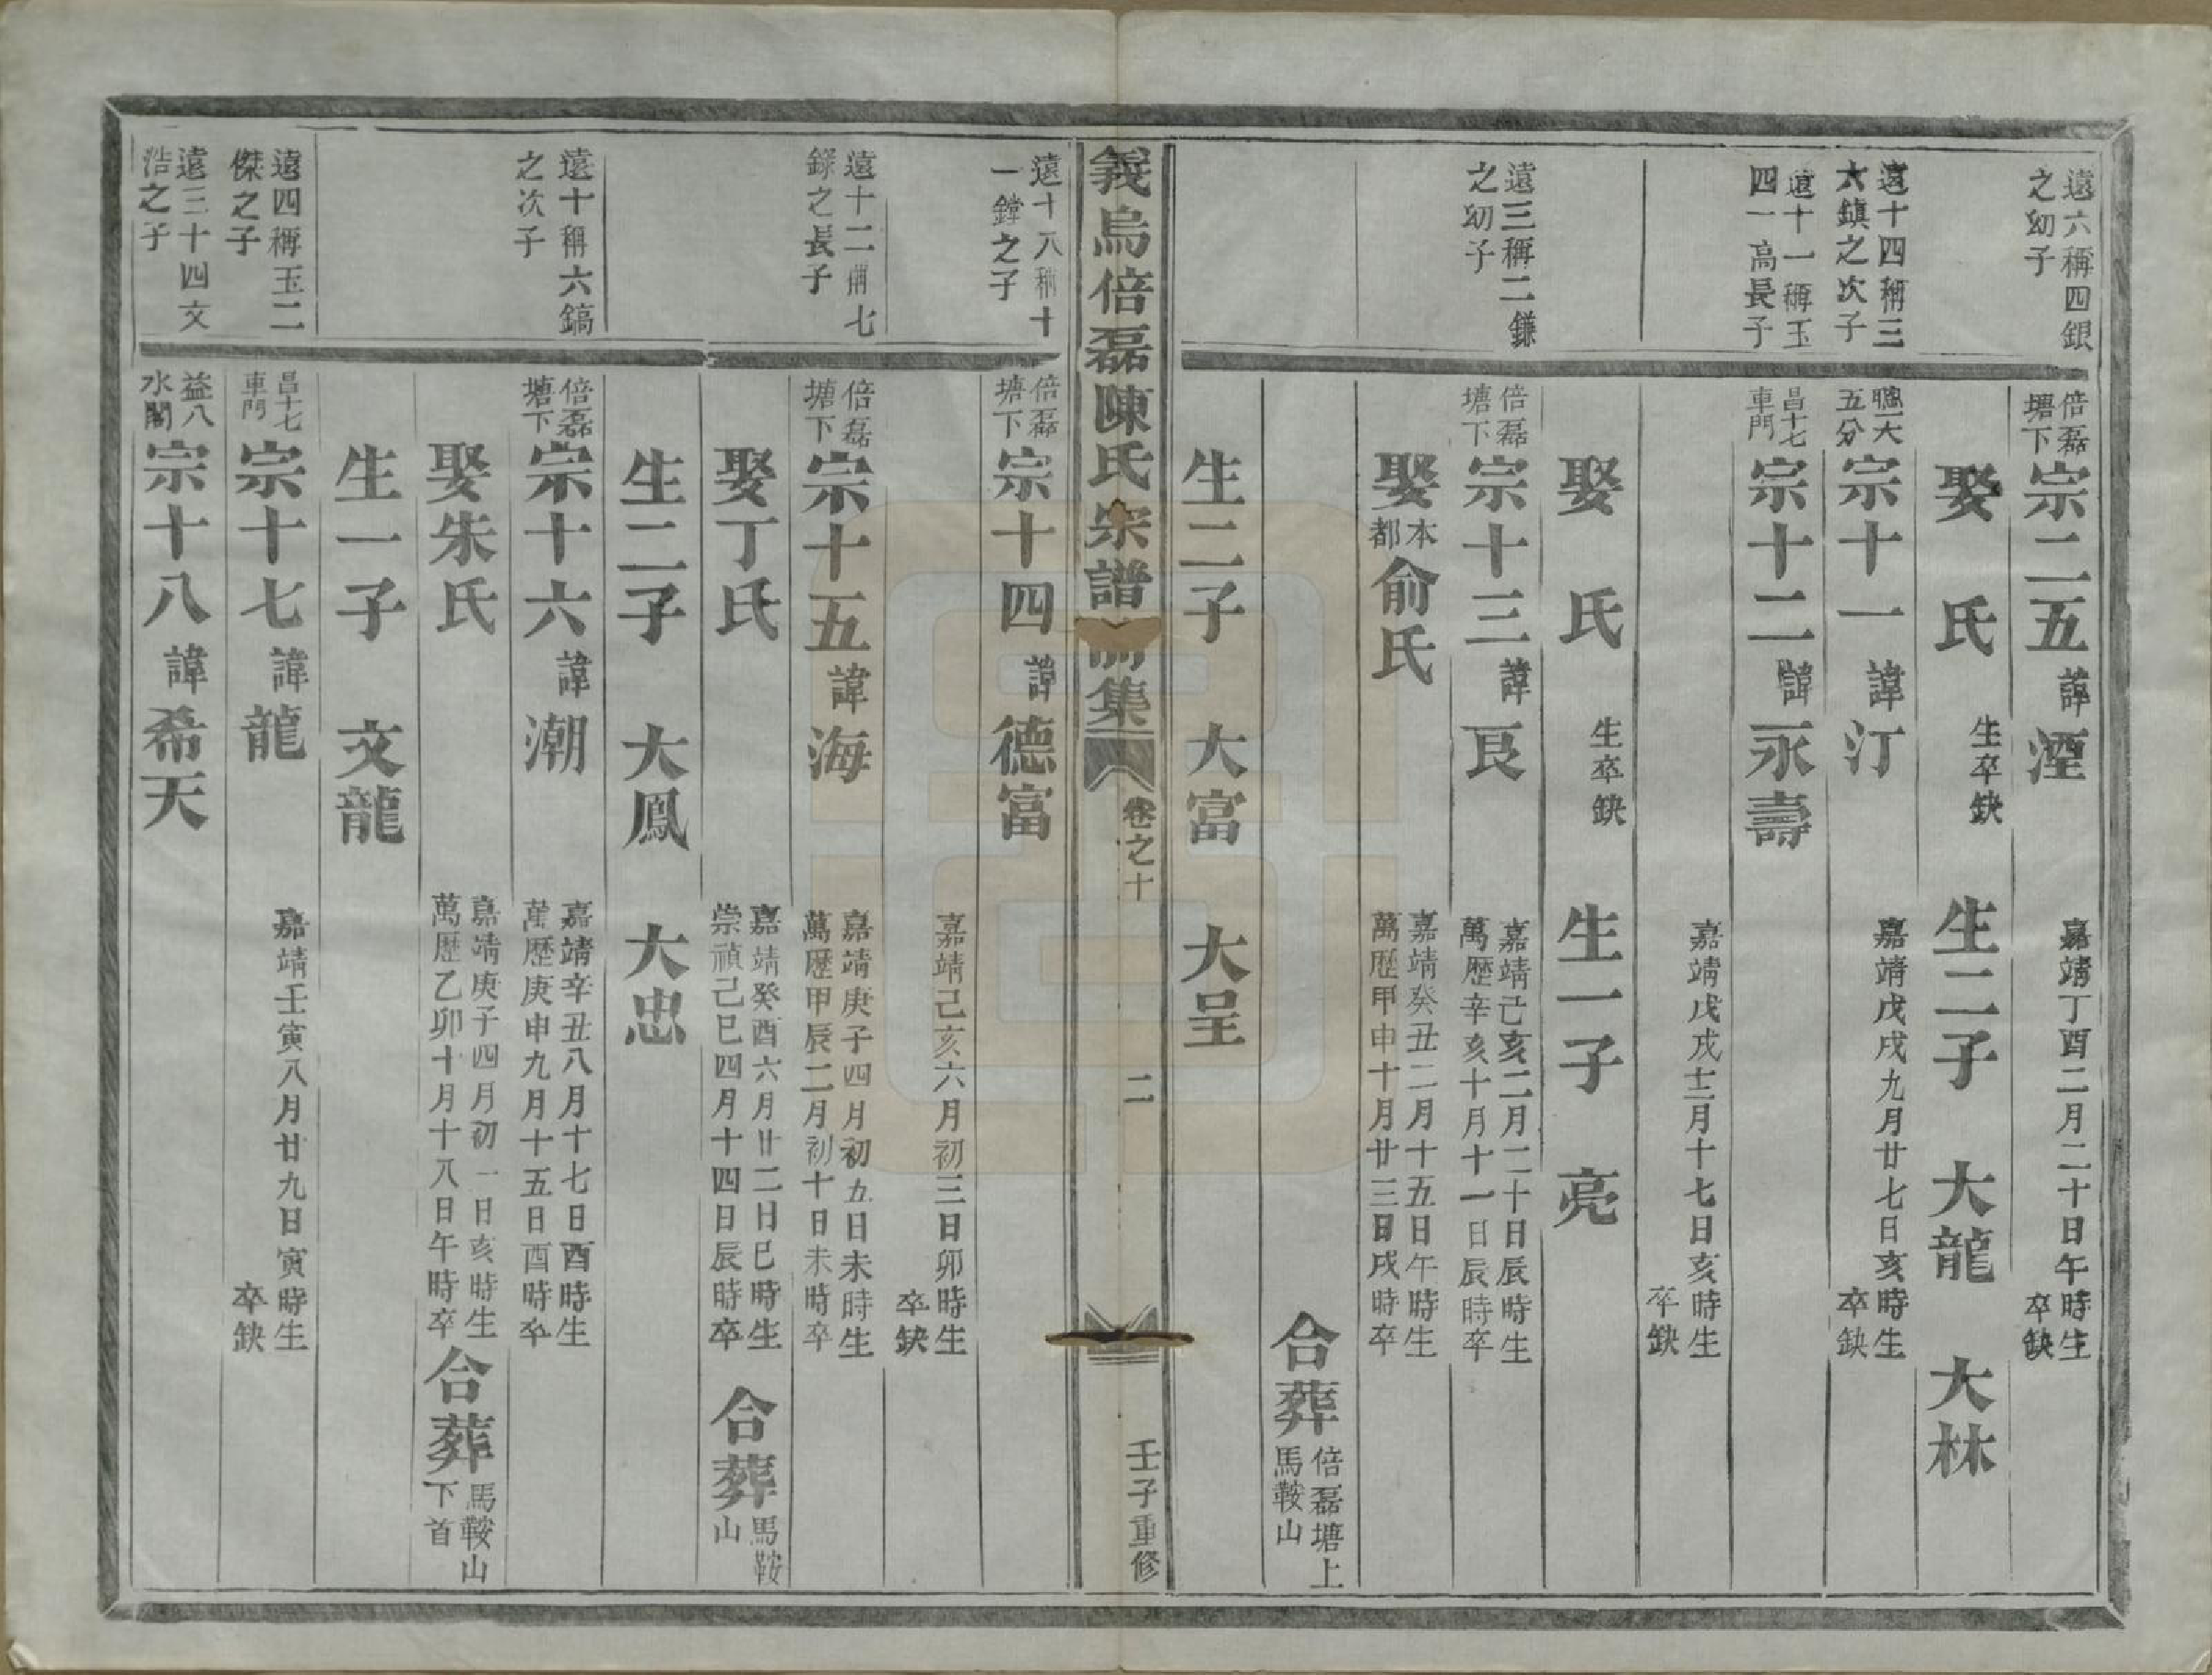 遠六稱四銀
之幼子
倍磊
塘下
宗二五
諱
湮
嘉靖丁酉二月二十日午時生
卒缺
娶 氏
生卒缺
生二子 大龍 大林
遠十四稱三
六鎮之次子
聰大
五分
宗十一
諱
汀
嘉靖戊戌九月廿七日亥時生
卒缺
遠十一稱玉
四一高長子
昌十七
車門
宗十二
諱
永壽
嘉靖戊戌十二月十七日亥時生
卒缺
娶 氏
生卒缺
生一子 亮
遠三稱二鎌
之幼子
倍磊
塘下
宗十三
諱
艮
嘉靖己亥二月二十日辰時生
萬歷辛亥十月十一日辰時卒
娶
本
都
俞氏
嘉靖癸丑二月十五日午時生
萬歷甲申十月廿三日戌時卒
合葬
倍磊塘上
馬鞍山
生二子 大富 大呈
義烏倍磊陳氏宗譜前集
卷之十
二
壬子重修
遠十八稱十
一鏜之子
倍磊
塘下
宗十四
諱
德富
嘉靖己亥六月初三日卯時生
卒缺
遠十二稱七
錄之長子
倍磊
塘下
宗十五
諱
海
嘉靖庚子四月初五日未時生
萬歷甲辰二月初十日未時卒
娶丁氏
嘉靖癸酉六月廿二日巳時生
崇禎己巳四月十四日辰時卒
合葬
馬鞍
山
生二子 大鳳 大忠
遠十稱六鎬
之次子
倍磊
塘下
宗十六
諱
潮
嘉靖辛丑八月十七日酉時生
萬歷庚申九月十五日酉時卒
娶朱氏
嘉靖庚子四月初一日亥時生
萬歷乙卯十月十八日午時卒
合葬
馬鞍山
下首
生一子 文龍
遠四稱玉二
傑之子
昌十七
車門
宗十七
諱
龍
嘉靖壬寅八月廿九日寅時生
卒缺
遠三十四文
浩之子
益八
水閣
宗十八
諱
希天